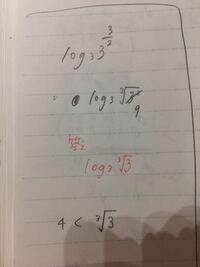 log₃3^(3/2)
log₃ ³√
9
log₃ ³√3
4 < ³√3